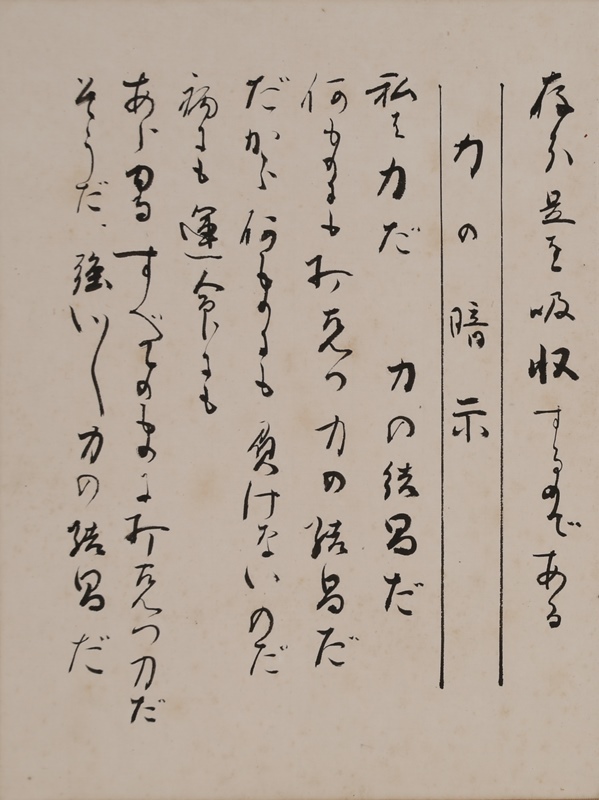 存分是を吸収するのである
力の暗示
私は力だ 力の結晶だ
何ものにも打克つ力の結晶だ
だから何ものにも負けないのだ
病にも運命にも
あらゆるすべてのものに打克つ力だ
そうだ、強い〱力の結晶だ